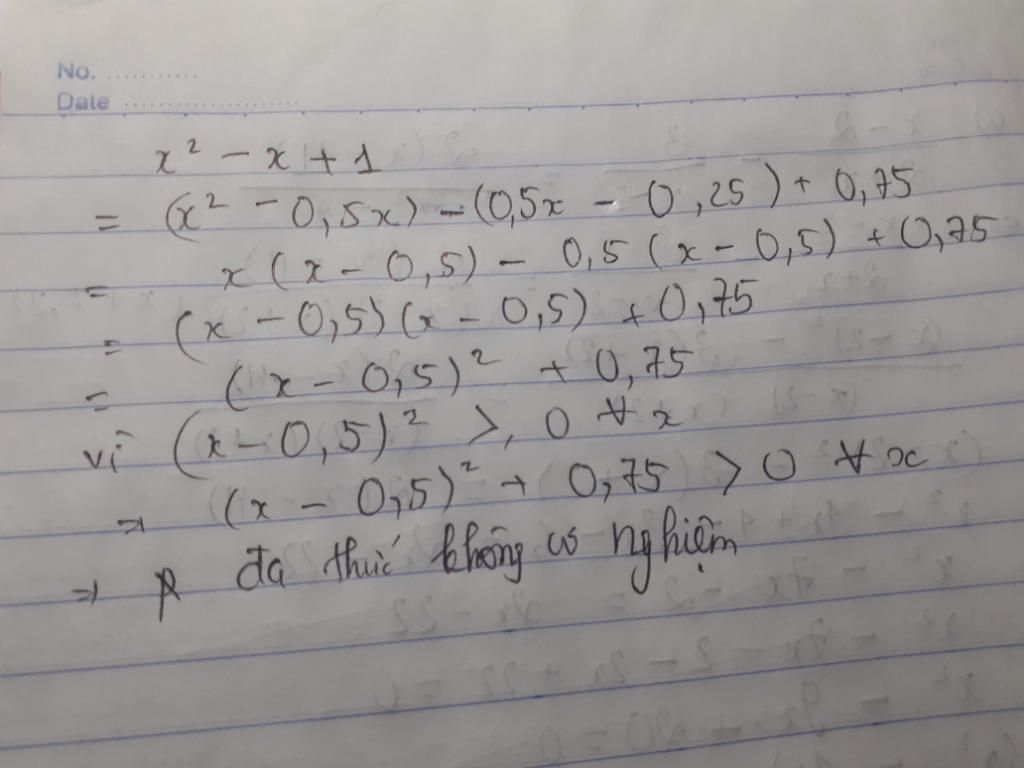 No. ...........
Date .....................
x² - x + 1
= (x² - 0,5x) - (0,5x - 0,25) + 0,75
= x(x - 0,5) - 0,5(x - 0,5) + 0,75
= (x - 0,5)(x - 0,5) + 0,75
= (x - 0,5)² + 0,75
vì (x - 0,5)² ≥ 0 ∀ x
⇒ (x - 0,5)² + 0,75 > 0 ∀ x
⇒ đa thức không có nghiệm